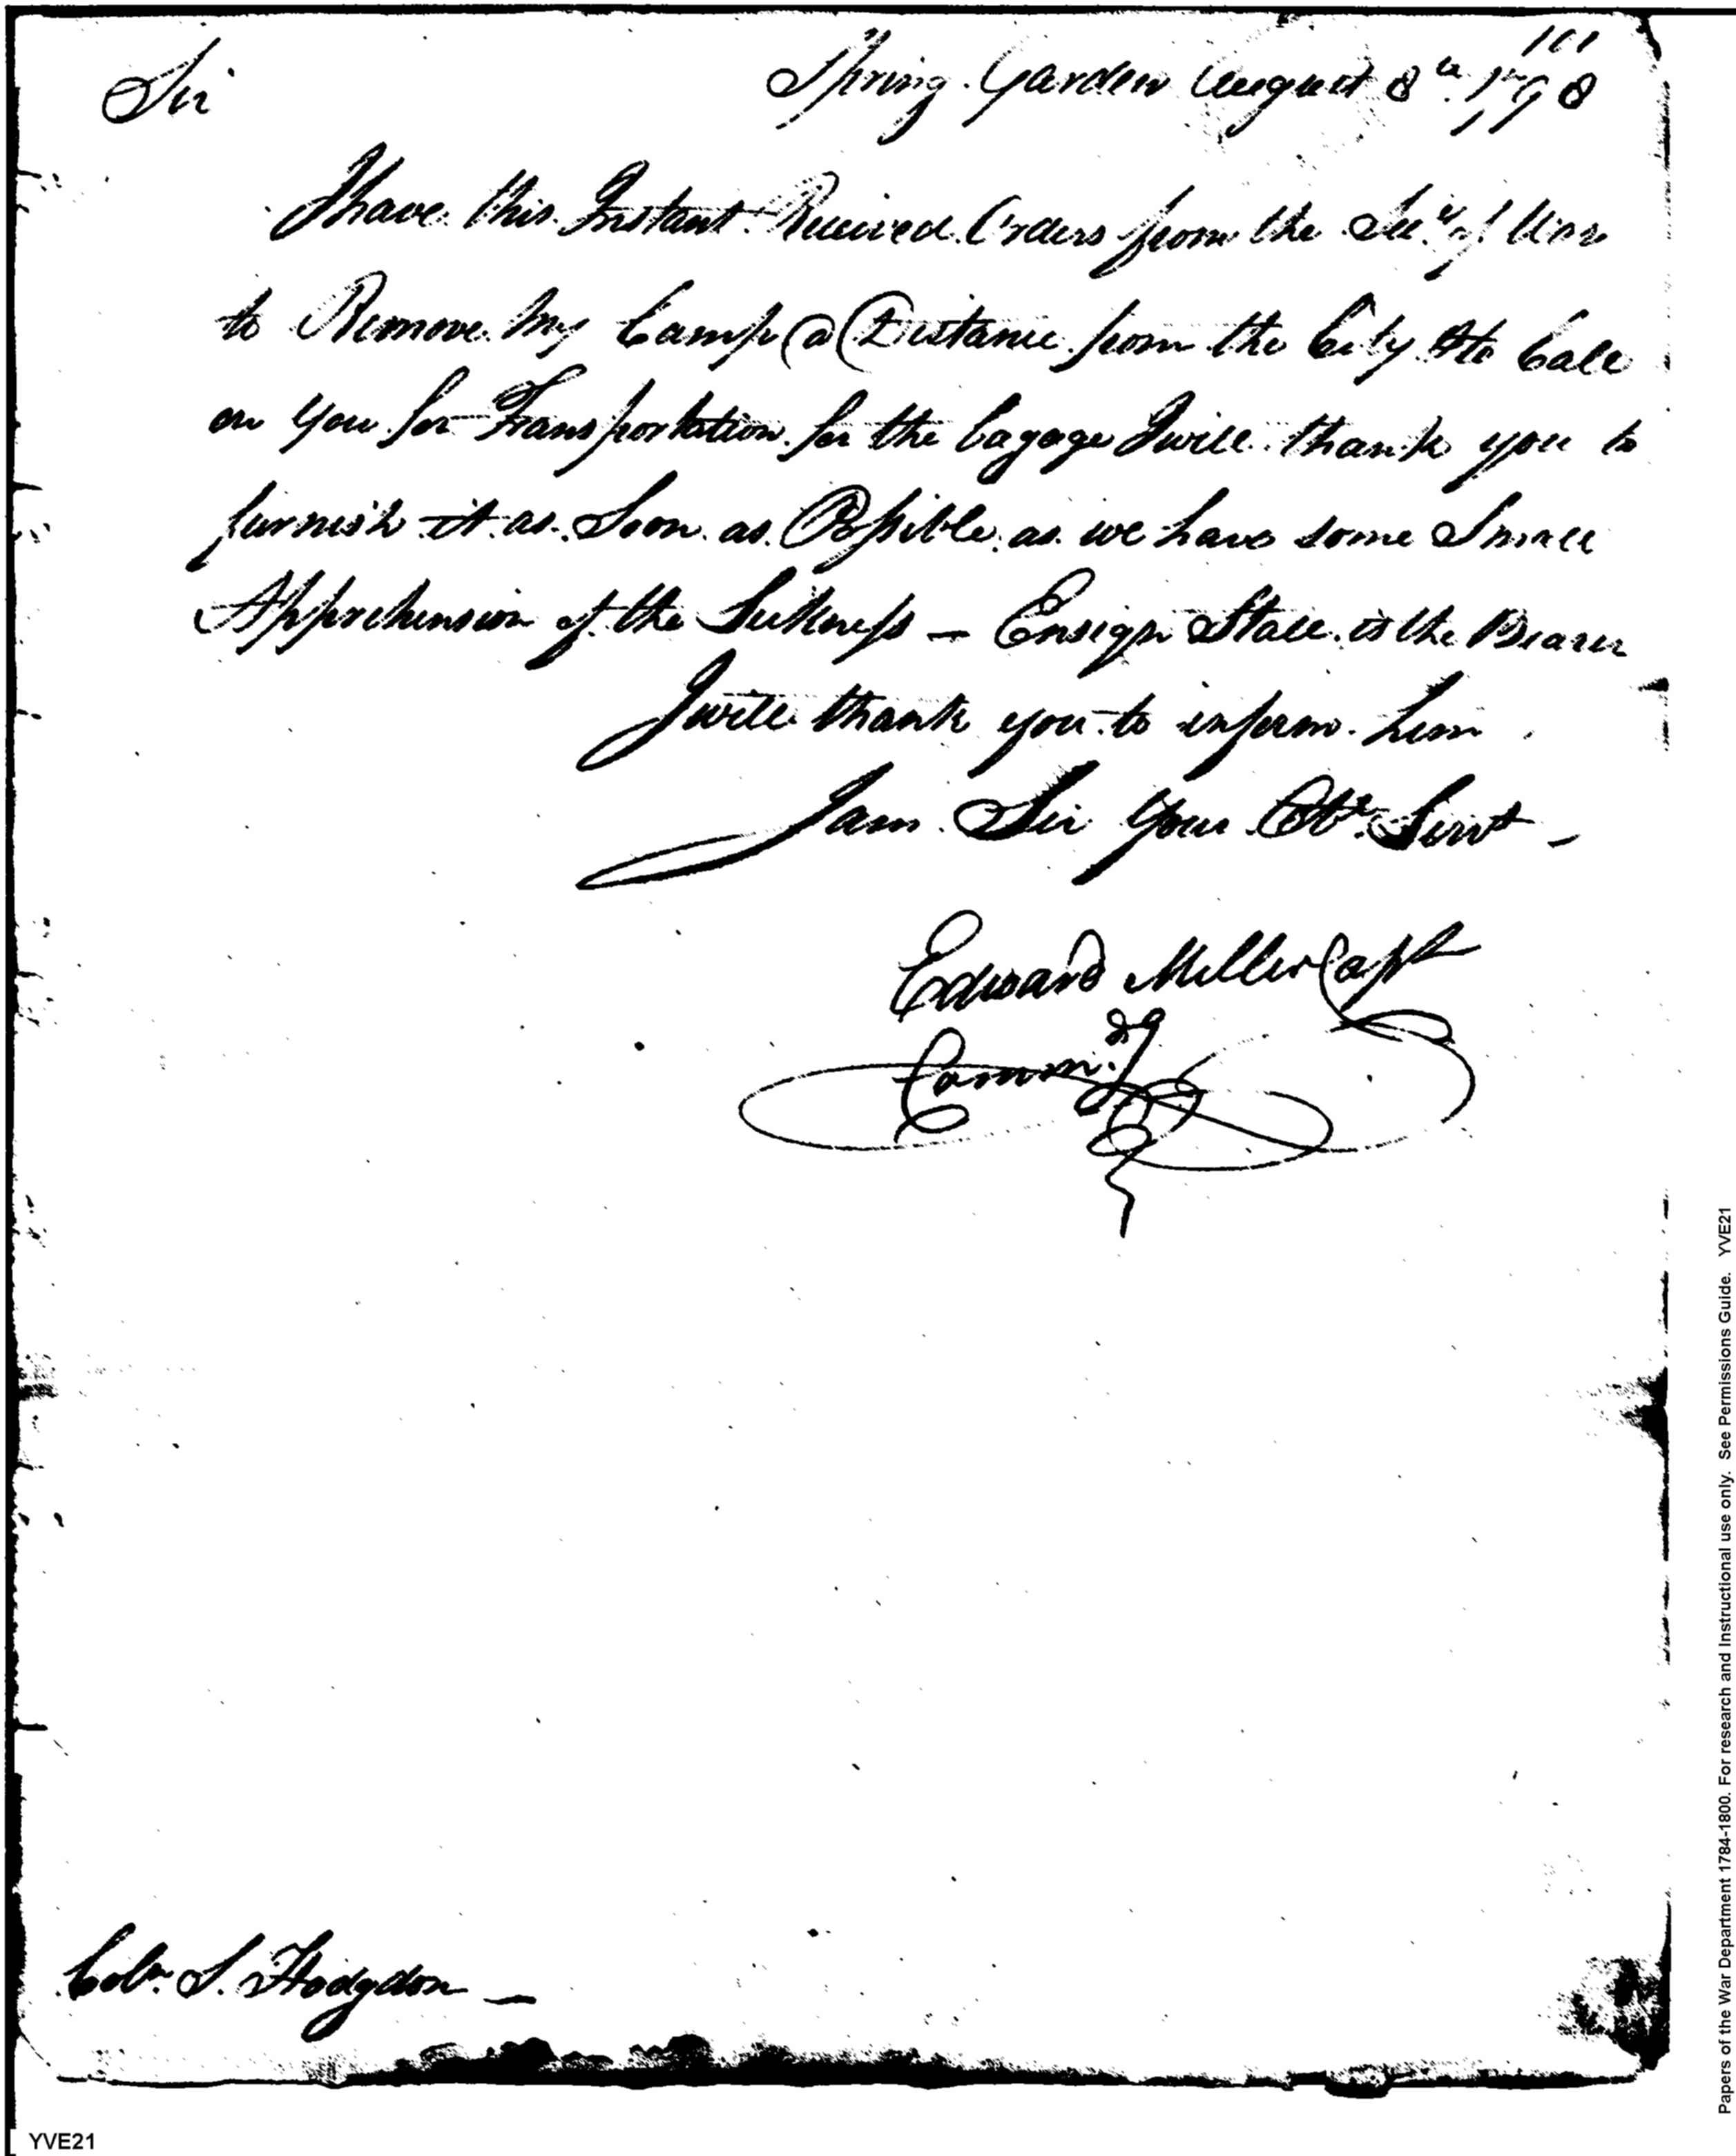 111
Sir Spring Garden August 8th 1798
I have this Instant Received Orders from the Secy of War
to Remove my Camp a Distance from the City & to Call
on You for Transportation for the bagage I will thank you to
furnish it as Soon as Possible as we have some Small
Apprehension of the Sickness — Ensign Stall is the Bearer
I will thank you to inform him
I am Sir Your Obt Servt —
Edward Miller Capt
Commdg
Coln S. Hodgdon —
YVE21
Papers of the War Department 1784-1800. For research and Instructional use only. See Permissions Guide. YVE21